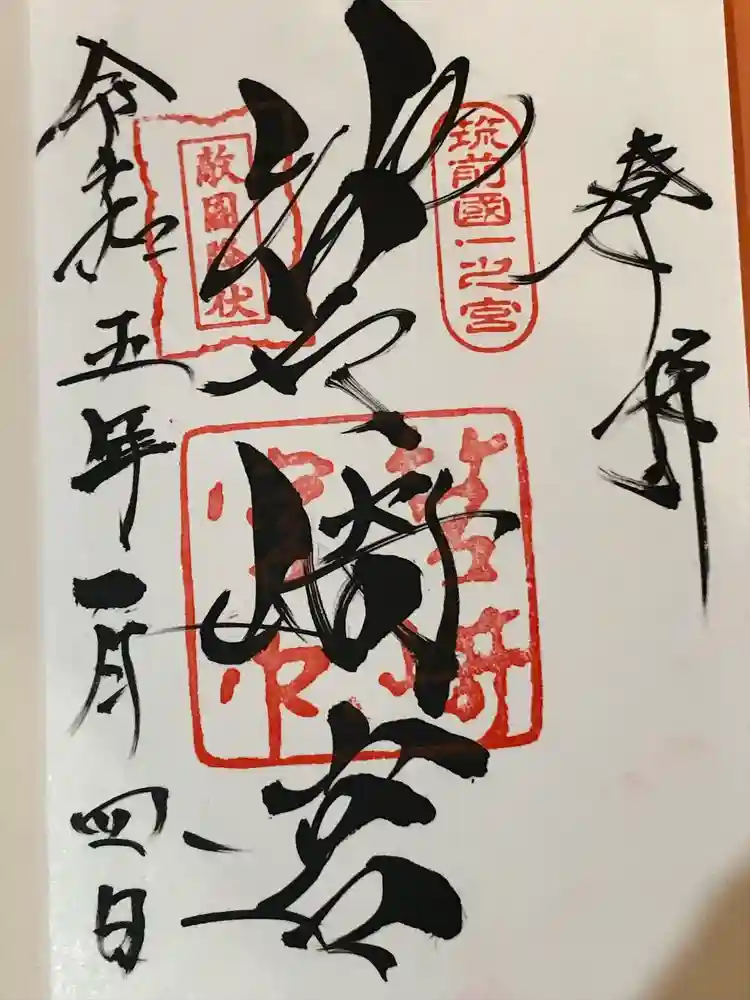 奉拝
筑前國一之宮
筥崎宮
敵國降伏
筥崎宮印
令和五年一月四日